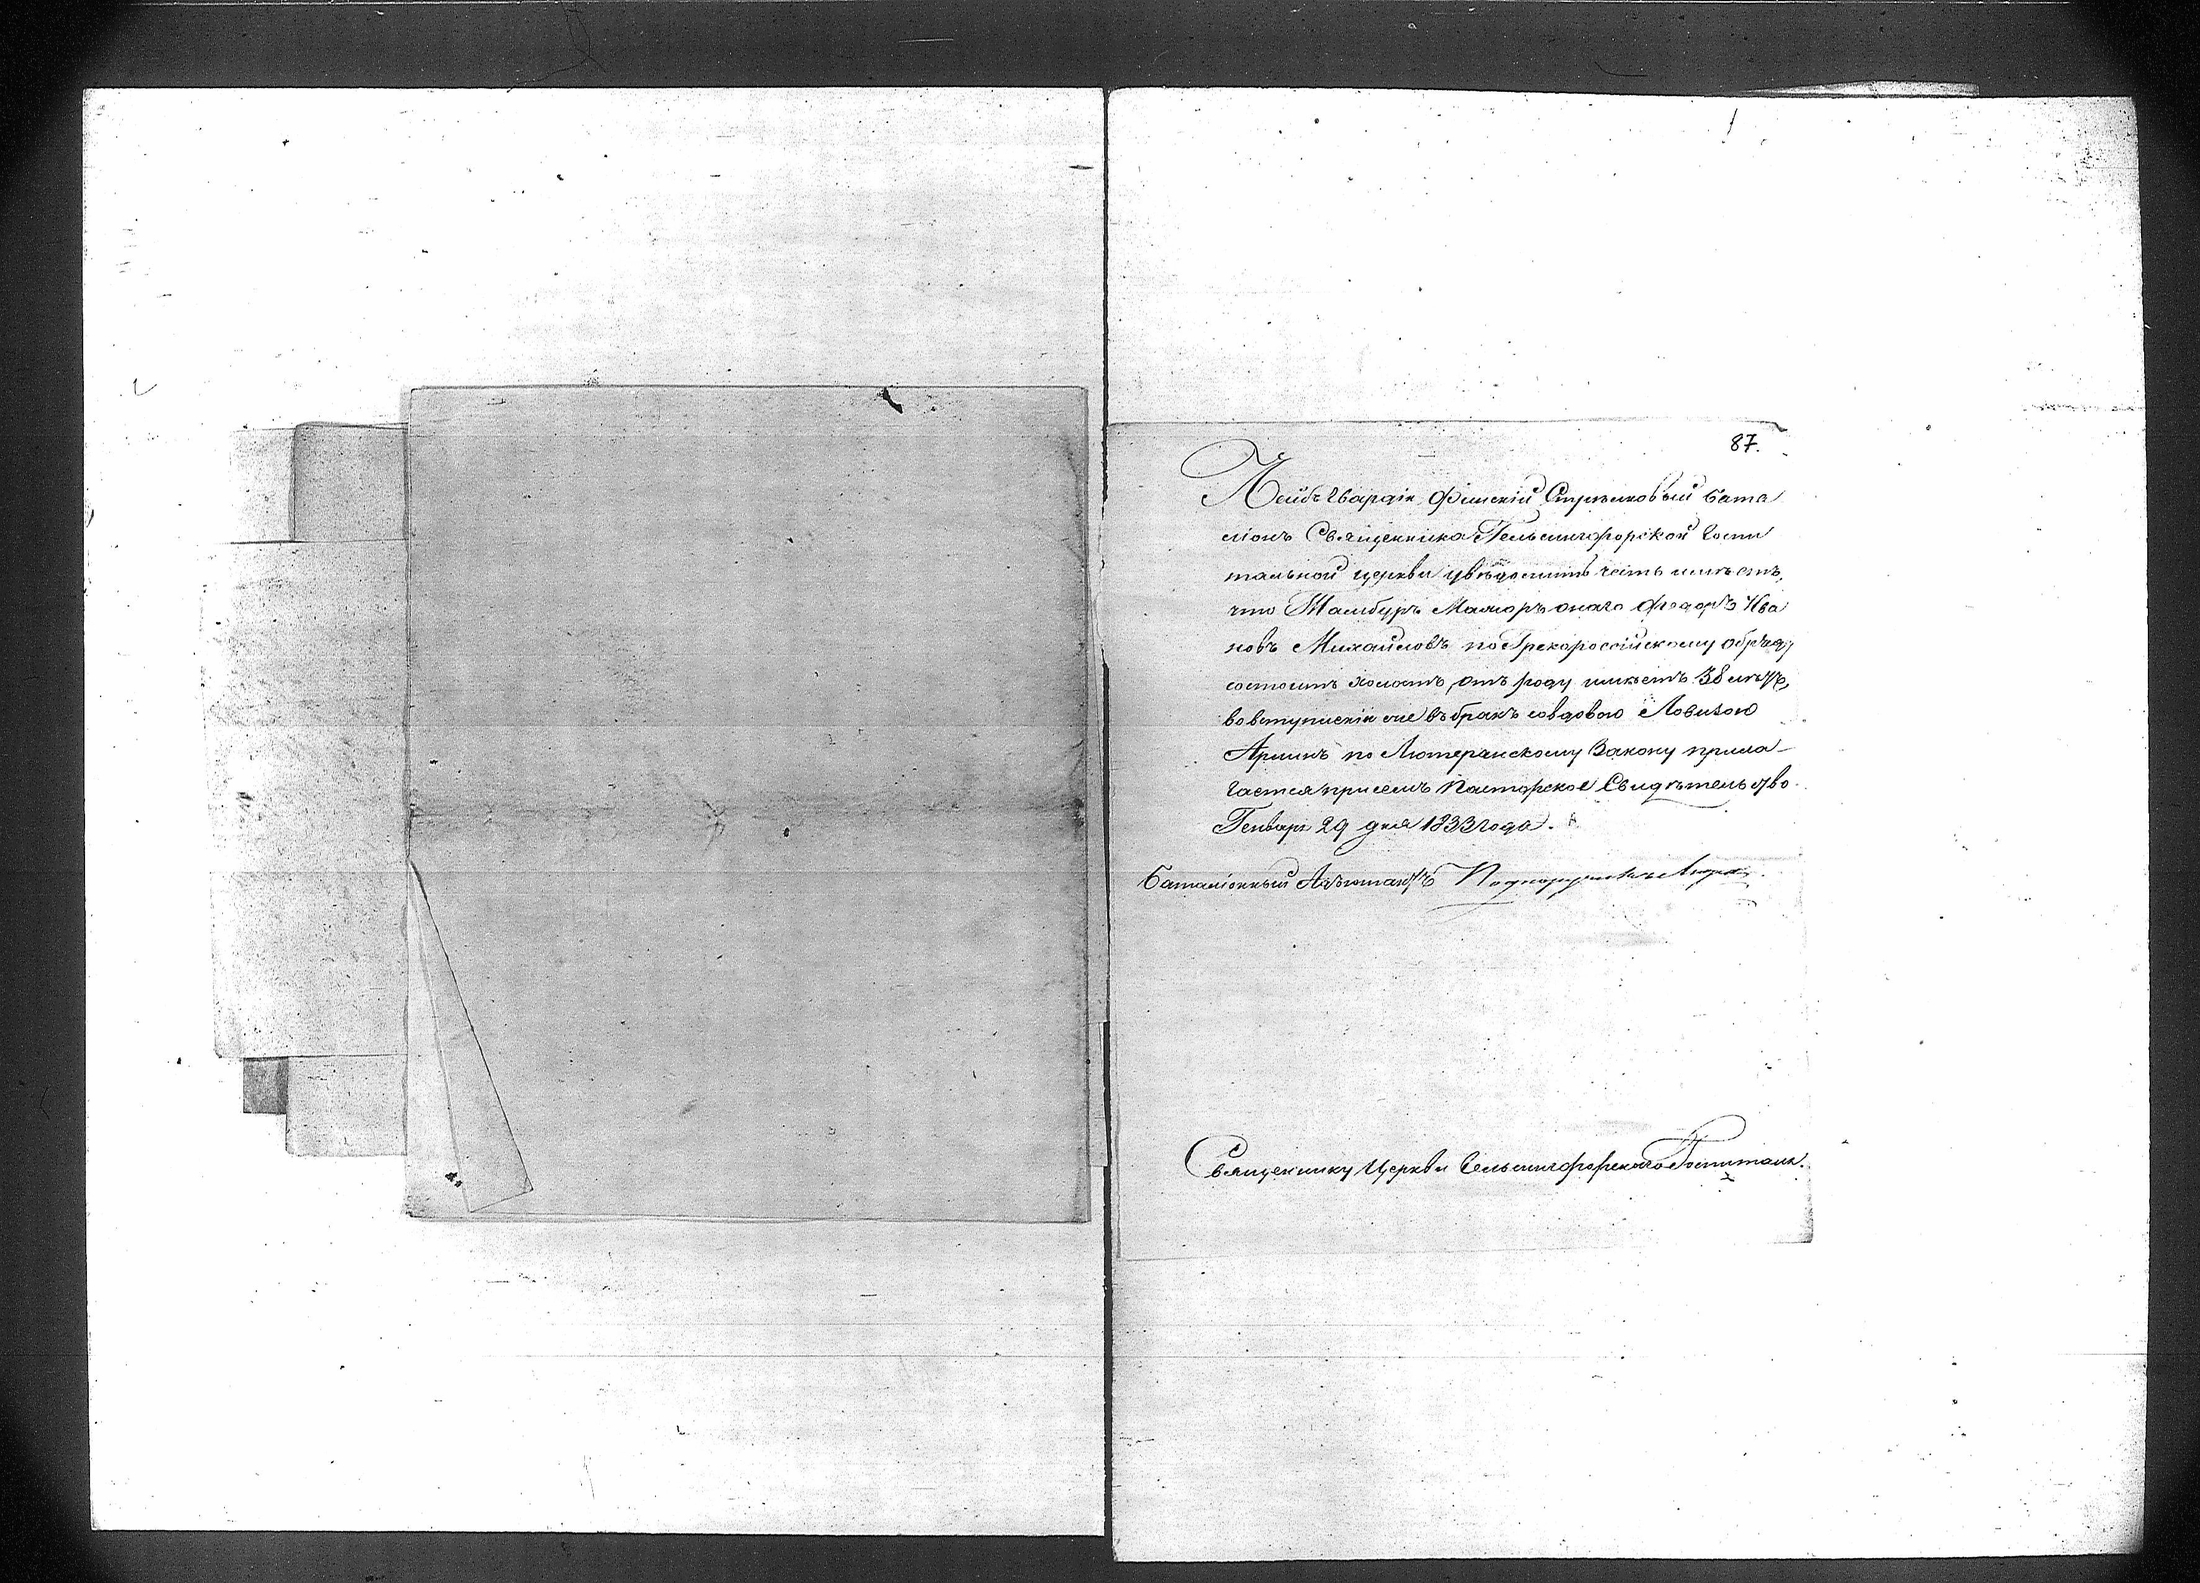 87.
Лейбъ Гвардіи Финскій Стрѣлковый бата
ліонъ Священника Гельсингфорской Госпи
тальной церкви увѣдомить честь имѣетъ,
что Тамбуръ Маіоръ онаго Федоръ Ива
новъ Михайловъ по Грекороссійскому обряду
состоитъ холостъ, отъ роду имѣетъ 38 лѣтъ,
во вступленіи же въ бракъ совдовою Ловизою
по Лютеранскому Закону прила-
гается присемъ Пасторское Свидѣтельство.
Генваря 29 дня 1833 года.
Баталіонный Адъютантъ Подпоручикъ
Священнику Церкви Гельсингфорскаго Госпиталя.